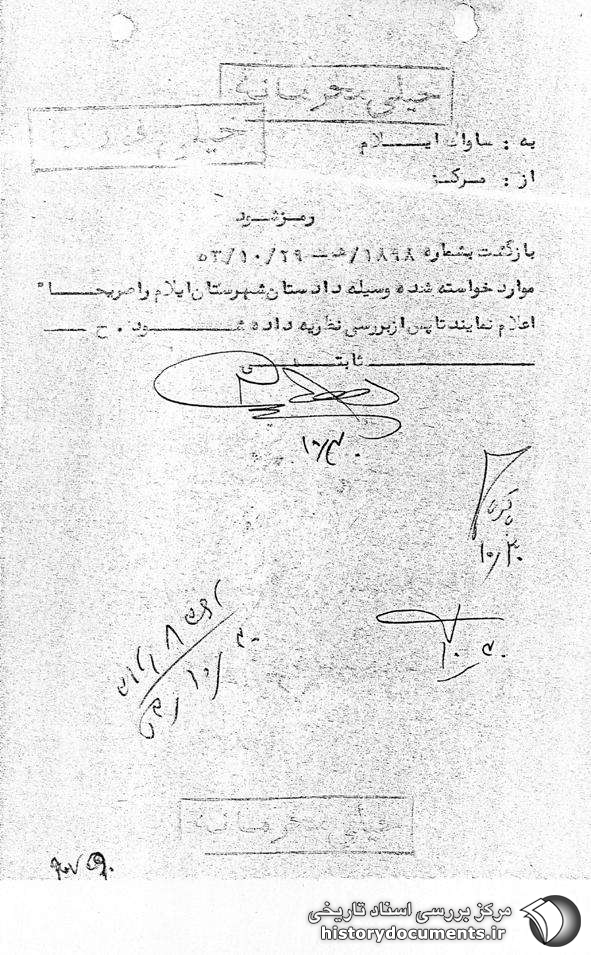 خیلی محرمانه
خیلی
به : ساواک ایــــلام
از : مرکــز
رمــز شــود
بازگشت بشماره ۱۸۹۸/هـ ــ ۵۳/۱۰/۲۹
موارد خواسته شده وسیله دادستان شهرستان ایلام را صریحــــا"
اعلام نمایند تا پس از بررسی نظریه داده شـــــــود . ح
ثابتــــی
۱۰/۳۰
۱۰/۳۰
۱۰/۳۰
خیلی محرمانه
مرکز بررسی اسناد تاریخی
historydocuments.ir